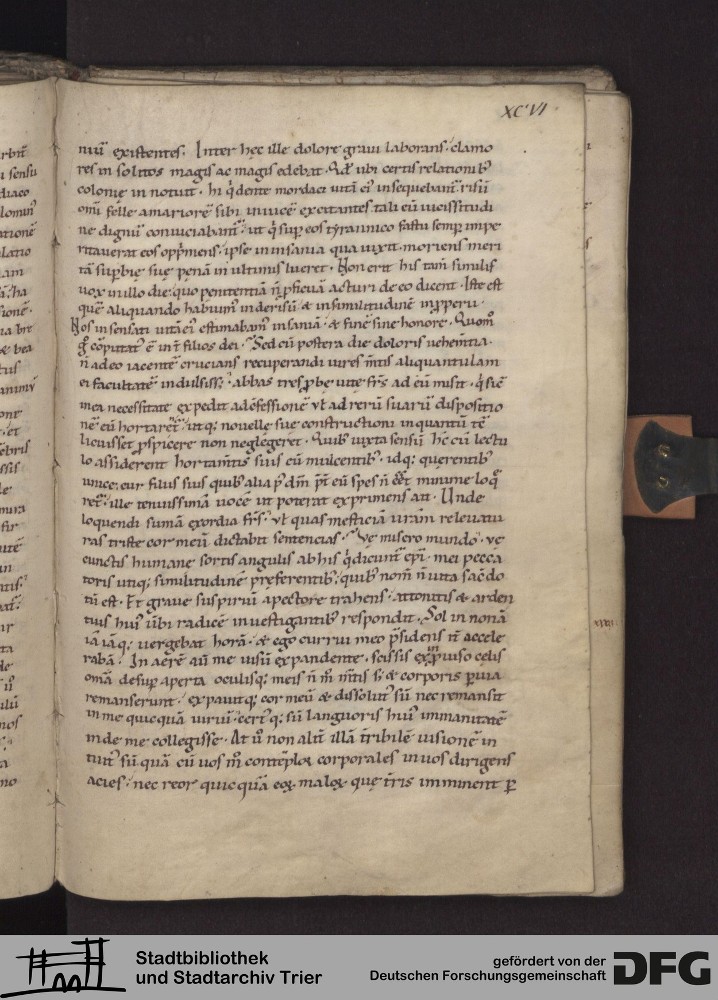 XCVI
niũ existentes. Inter hęc ille dolore graui laborans, clamo
res in solitos magis ac magis edebat. Qđ ubi certis relationibꝰ
colonie in notuit. hi q̇ dente mordaci uitã eiꝰ insequebant̃. risũ
omi felle amariorẽ sibi inuicẽ excitantes. tali eũ uicissitudi
ne dignũ conuiciabant̃. ut q̇ sup eos tyrannico fastu semp̱ impe
ritauerat eos opp̃mens, ipse in insania qua uixit. moriens meri
tã supbie sue penã in ultimis lueret. Non erit his tam̃ similis
uox in illo die, quo penitentiã ñ ꝓficuã acturi de eo dicent. Iste est
quẽ aliquando habuimꝰ in derisũ & in similitudinẽ inꝓperii.
Nos insensati uitã eiꝰ estimabamꝰ insaniã. & finẽ sine honore. Quom̊
g̊ cõputatꝰ ẽ int̃ filios dei. Sed cũ postera die doloris uehem̃tia
ñ adeo iacentẽ crucians recuperandi uires m̃tis aliquantulam
ei facultatẽ indulsiss&, abbas tres ꝓbe uite fr̃s ad eũ misit. q̇ sic̃
in ea necessitate expedit ad c̃fessionẽ ut̃ ad rerũ suarũ dispositio
nẽ eũ hortarent̃. utq; nouelle sue constructioni in quantũ tẽ
licuisset ꝓspicere non neglegeret. Quibꝰ iuxta sensũ hc̃ cũ lectu
lo assiderent hortam̃tis suis eũ mulcentibꝰ. idq; querentibꝰ
unice, cur filius suis quibꝰ alia p̃ dm̃ p̃t eũ spes ñ eẽt minime loq̃
ret̃, ille tenuissimã uocẽ ut poterat exprimens ait. Unde
loquendi sumã exordia fr̃s, ut̃ quas mesticiã ur̃am releuatu
ras triste cor meũ dictabit sentencias. Ve misero mundo. ve
cunctis humane sortis angulis ab his q̇ dicunt̃ ep̃i. mei pecca
toris utiq; similitudinẽ preferentibꝰ, quibꝰ nom̃ ñ uita sac̃do
tũ est. Et graue suspiriũ a pectore trahens, attonitis & arden
tius huiꝰ ũbi radicẽ inuestigantibꝰ respondit. Sol in nonã
iã iãq; uergebat horã. & ego currui meo p̃sidens it̃ accele
rabã. In aerẽ aũ me uisũ expandente. scissis ex impuiso cęlis
om̃ia desup aperta oculisq; meis ñ m̊ m̃tis s; & corporis ꝑuia
remanserunt. expauitq; cor meũ & dissolutꝰ sũ nec remansit
in me quicquã uiriũ. certꝰq; sũ languoris huiꝰ immanitatẽ
inde me collegisse. At ů non aliã illã t̃ribilẽ uisionẽ in
tuitꝰ sũ quã cũ uos m̊ contẽplor corporales in uos dirigens
acies. nec reor quicquã eoꝝ maloꝝ que t̃ris imminent ꝑ
Stadtbibliothek
und Stadtarchiv Trier
gefördert von der
Deutschen Forschungsgemeinschaft
DFG